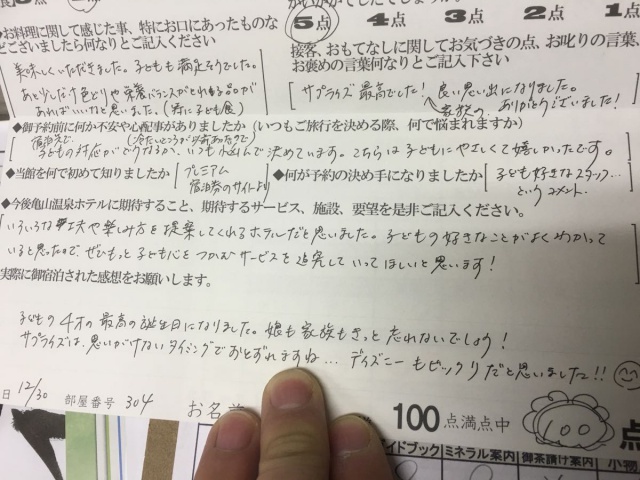 5点 4点 3点 2点 1点
◆お料理に関して感じた事、特にお口にあったものな
どございましたら何なりとご記入ください
接客、おもてなしに関してお気づきの点、お叱りの言葉、
お褒めの言葉何なりとご記入下さい
美味しくいただきました。子どもも満足そうでした。
あと少しだけ色どりや栄養バランスがとれる品が
あればいいなと思いました。(特に子ども食)
サプライズ最高でした! 良い思い出になりました。
家族の ありがとうございました!
◆御予約前に何か不安や心配事がありましたか(いつもご旅行を決める際、何で悩まれますか)
宿泊先で、
子どもの対応がどうなるか、いつも悩んで決めています。こちらは子どもにやさしくて嬉しかったです。
◆当館を何で初めて知りましたか
プレミアム
宿泊券のサイトより
◆何が予約の決め手になりましたか
子ども好きなスタッフ…
というコメント。
◆今後亀山温泉ホテルに期待すること、期待するサービス、施設、要望を是非ご記入ください。
いろいろな工夫や楽しみ方を提案してくれるホテルだと思いました。子どもの好きなことがよくわかって
いると思ったので、ぜひもっと子ども心をつかむサービスを追究していってほしいと思います!
実際に御宿泊された感想をお願いします。
子どもの4才の最高の誕生日になりました。娘も家族もきっと忘れないでしょう!
サプライズは、思いがけないタイミングでおとずれますね… ディズニーもビックリだと思いました!!
日 12/30 部屋番号 304 お名前 100点満点中 100 点
イドブック ミネラル案内 御茶請け案内 小物